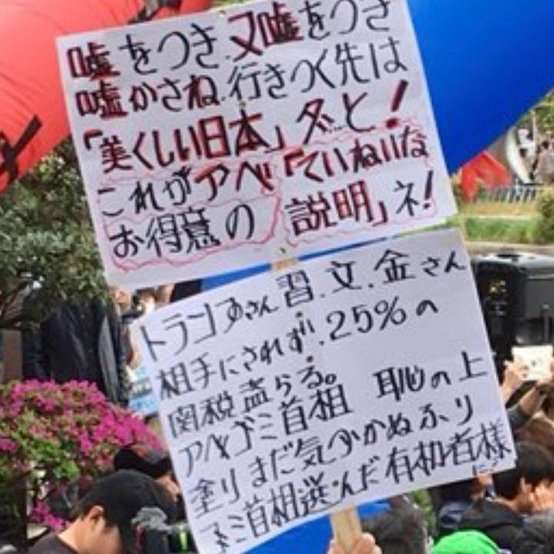 嘘をつき.又嘘をつき
嘘かさね.行きつく先は
「美しい日本」ダと!
これがアベ「ていねいな
お得意の 説明」ネ!
トランプさん 習.文.金さん
相手にされず!.25%の
関税盖らる。
アベゴミ首相 恥の上
塗りまだ気つかぬふり
ゴミ首相選んだ有权者様
に